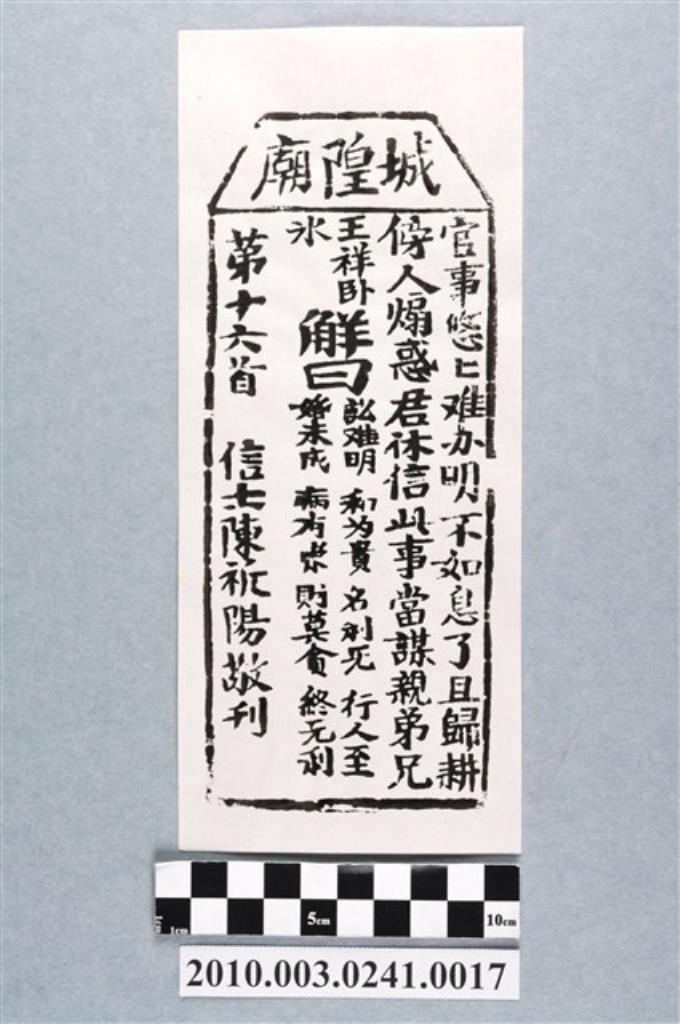 城隍廟
官事悠匕难办明不如息了且歸耕
傍人煽惑君休信此事當謀親弟兄
王祥卧
氷
觧曰
訟难明 和为貴 名利无 行人至
婚未成 病有祟 財莫貪 終无利
第十六首 信士陳陽敬刊
1cm 5cm 10cm
2010.003.0241.0017